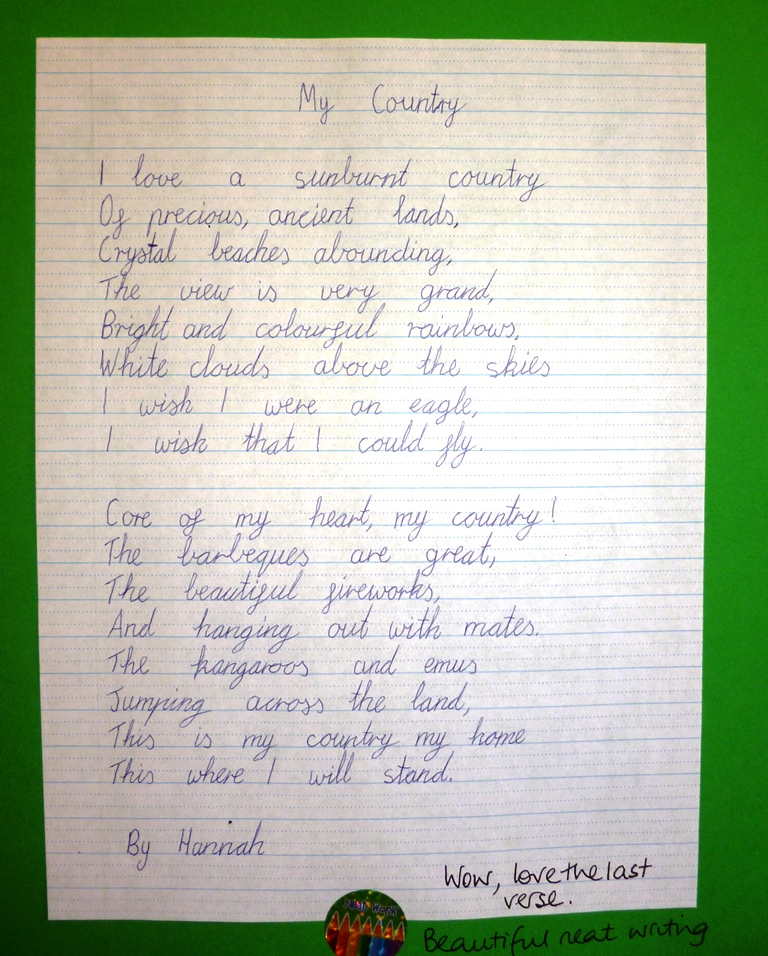 My Country
I love a sunburnt country
Of precious, ancient lands,
Crystal beaches abounding,
The view is very grand,
Bright and colourful rainbows,
White clouds above the skies
I wish I were an eagle,
I wish that I could fly.
Core of my heart, my country!
The barbeques are great,
The beautiful fireworks,
And hanging out with mates.
The kangaroos and emus
Jumping across the land,
This is my country my home
This where I will stand.
By Hannah
Wow, love the last
verse.
Neat Work
Beautiful neat writing